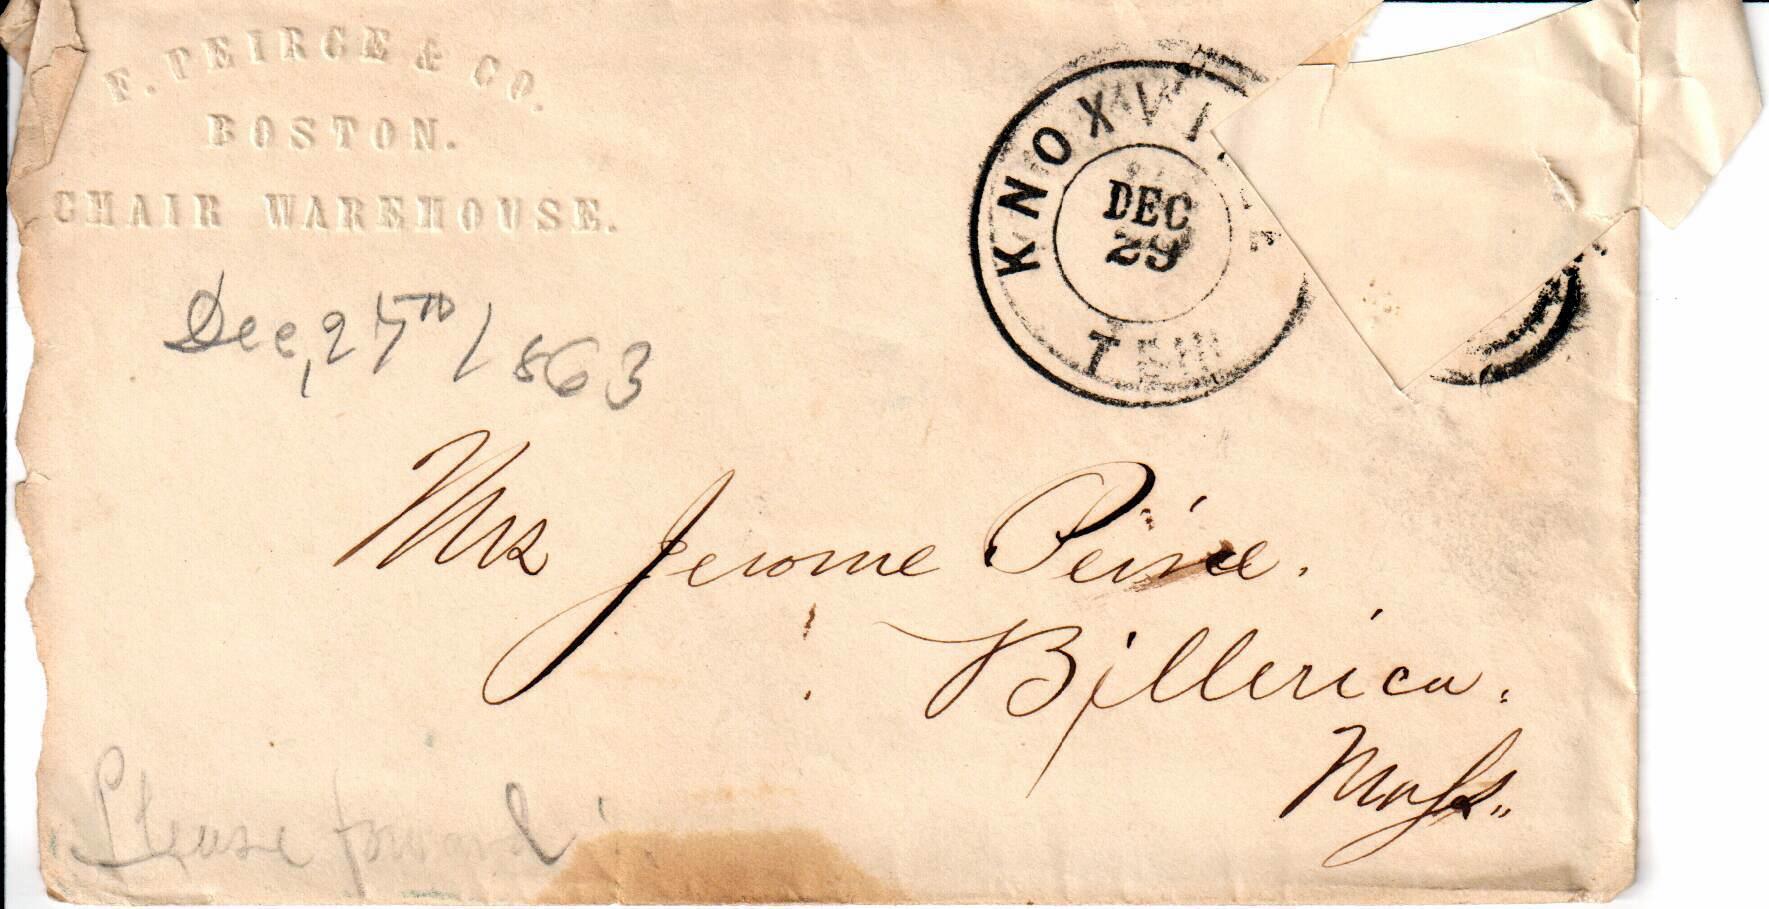 F. PEIRCE & CO.
BOSTON.
CHAIR WAREHOUSE.
KNOXVI
DEC
29
TEN
Dec, 27TH / 1863
Mrs Jerome Peirce.
Billerica.
Mass.
Please forward